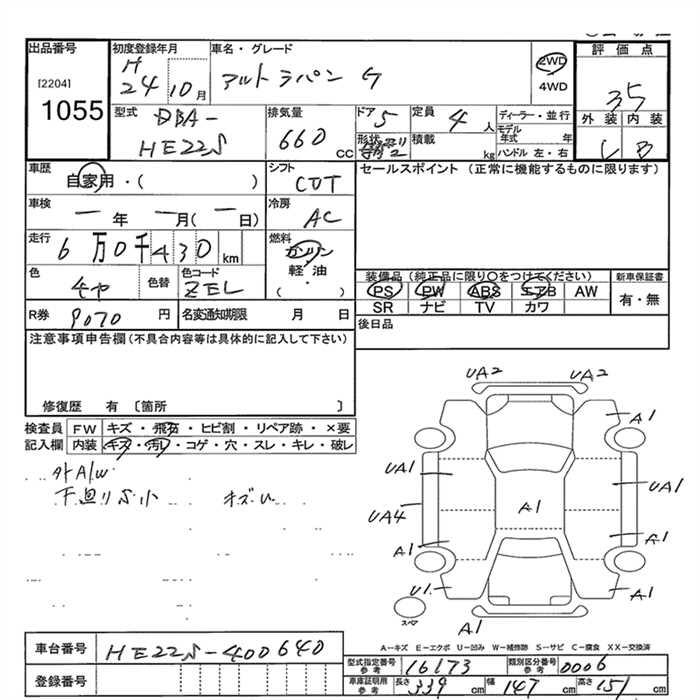 出品番号
[2204]
1055
初度登録年月
H
24 10月
車名・グレード
アルトラパン G
2WD
4WD
評価点
3.5
外装 内装
C B
型式
DBA-
HE22S
排気量
660 CC
ドア 5
形状
定員 4 人
積載 kg
ディーラー・並行
モデル年式 年
ハンドル 左・右
車歴
自家用・( )
シフト
CVT
セールスポイント (正常に機能するものに限ります)
車検
ー年 ー月(ー日)
冷房
AC
走行
6万0千430km
燃料
ガソリン
軽・油
( )
色
色替
色コード
ZEL
装備品 (純正品に限り○をつけてください)
PS PW ABS エアB AW
SR ナビ TV カワ
新車保証書
有・無
R券 9070 円
名変通知期限 月 日
後日品
注意事項申告欄 (不具合内容等は具体的に記入して下さい)
修復歴 有 〔箇所 〕
検査員記入欄
FW キズ・飛石・ヒビ割・リペア跡・×要
内装 キズ・汚レ・コゲ・穴・スレ・キレ・破レ
外A/W
下廻りS小 キズU
UA2 UA2
A1
UA1 UA1
A1
UA4
A1 A1
U1 A1
スペア
A1
A-キズ E-エクボ U-凹み W-補修跡 S-サビ C-腐食 XX-交換済
車台番号 HE22S-400640
登録番号
型式指定番号 参考 16173
類別区分番号 参考 0006
車庫証明用 参考 長さ 339 cm 幅 147 cm 高さ 151 cm